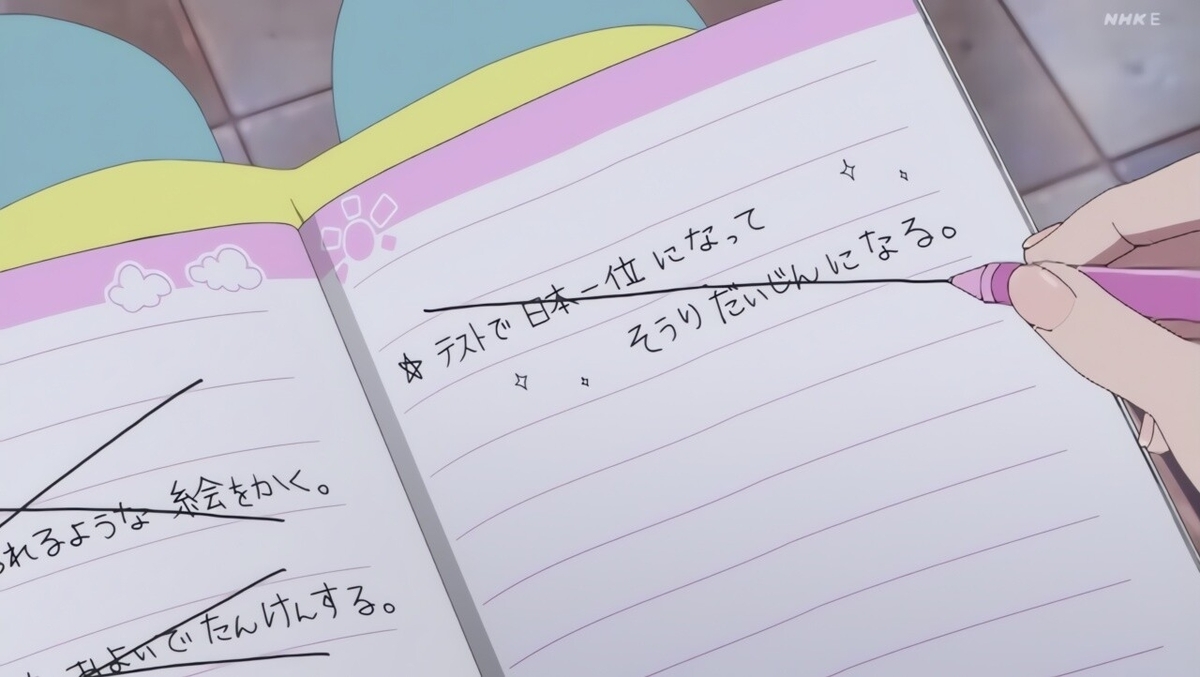 NHK E
れるような 絵をかく。
およいで たんけんする。
☆ テストで 日本一位 になって
そうりだいじんになる。